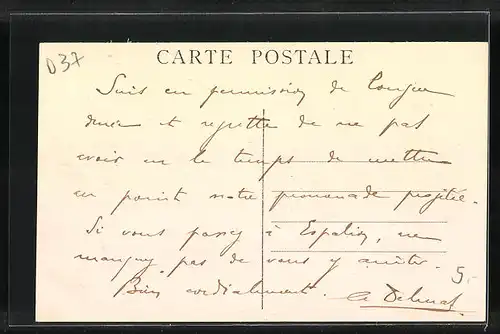 D37
CARTE POSTALE
Suis en permission de longue
durée et regrette de ne pas
avoir eu le temps de mettre
en point notre promenade projetée.
Si vous passez à Espalion, ne
manquez pas de vous y arrêter.
Bien cordialement.
5.-